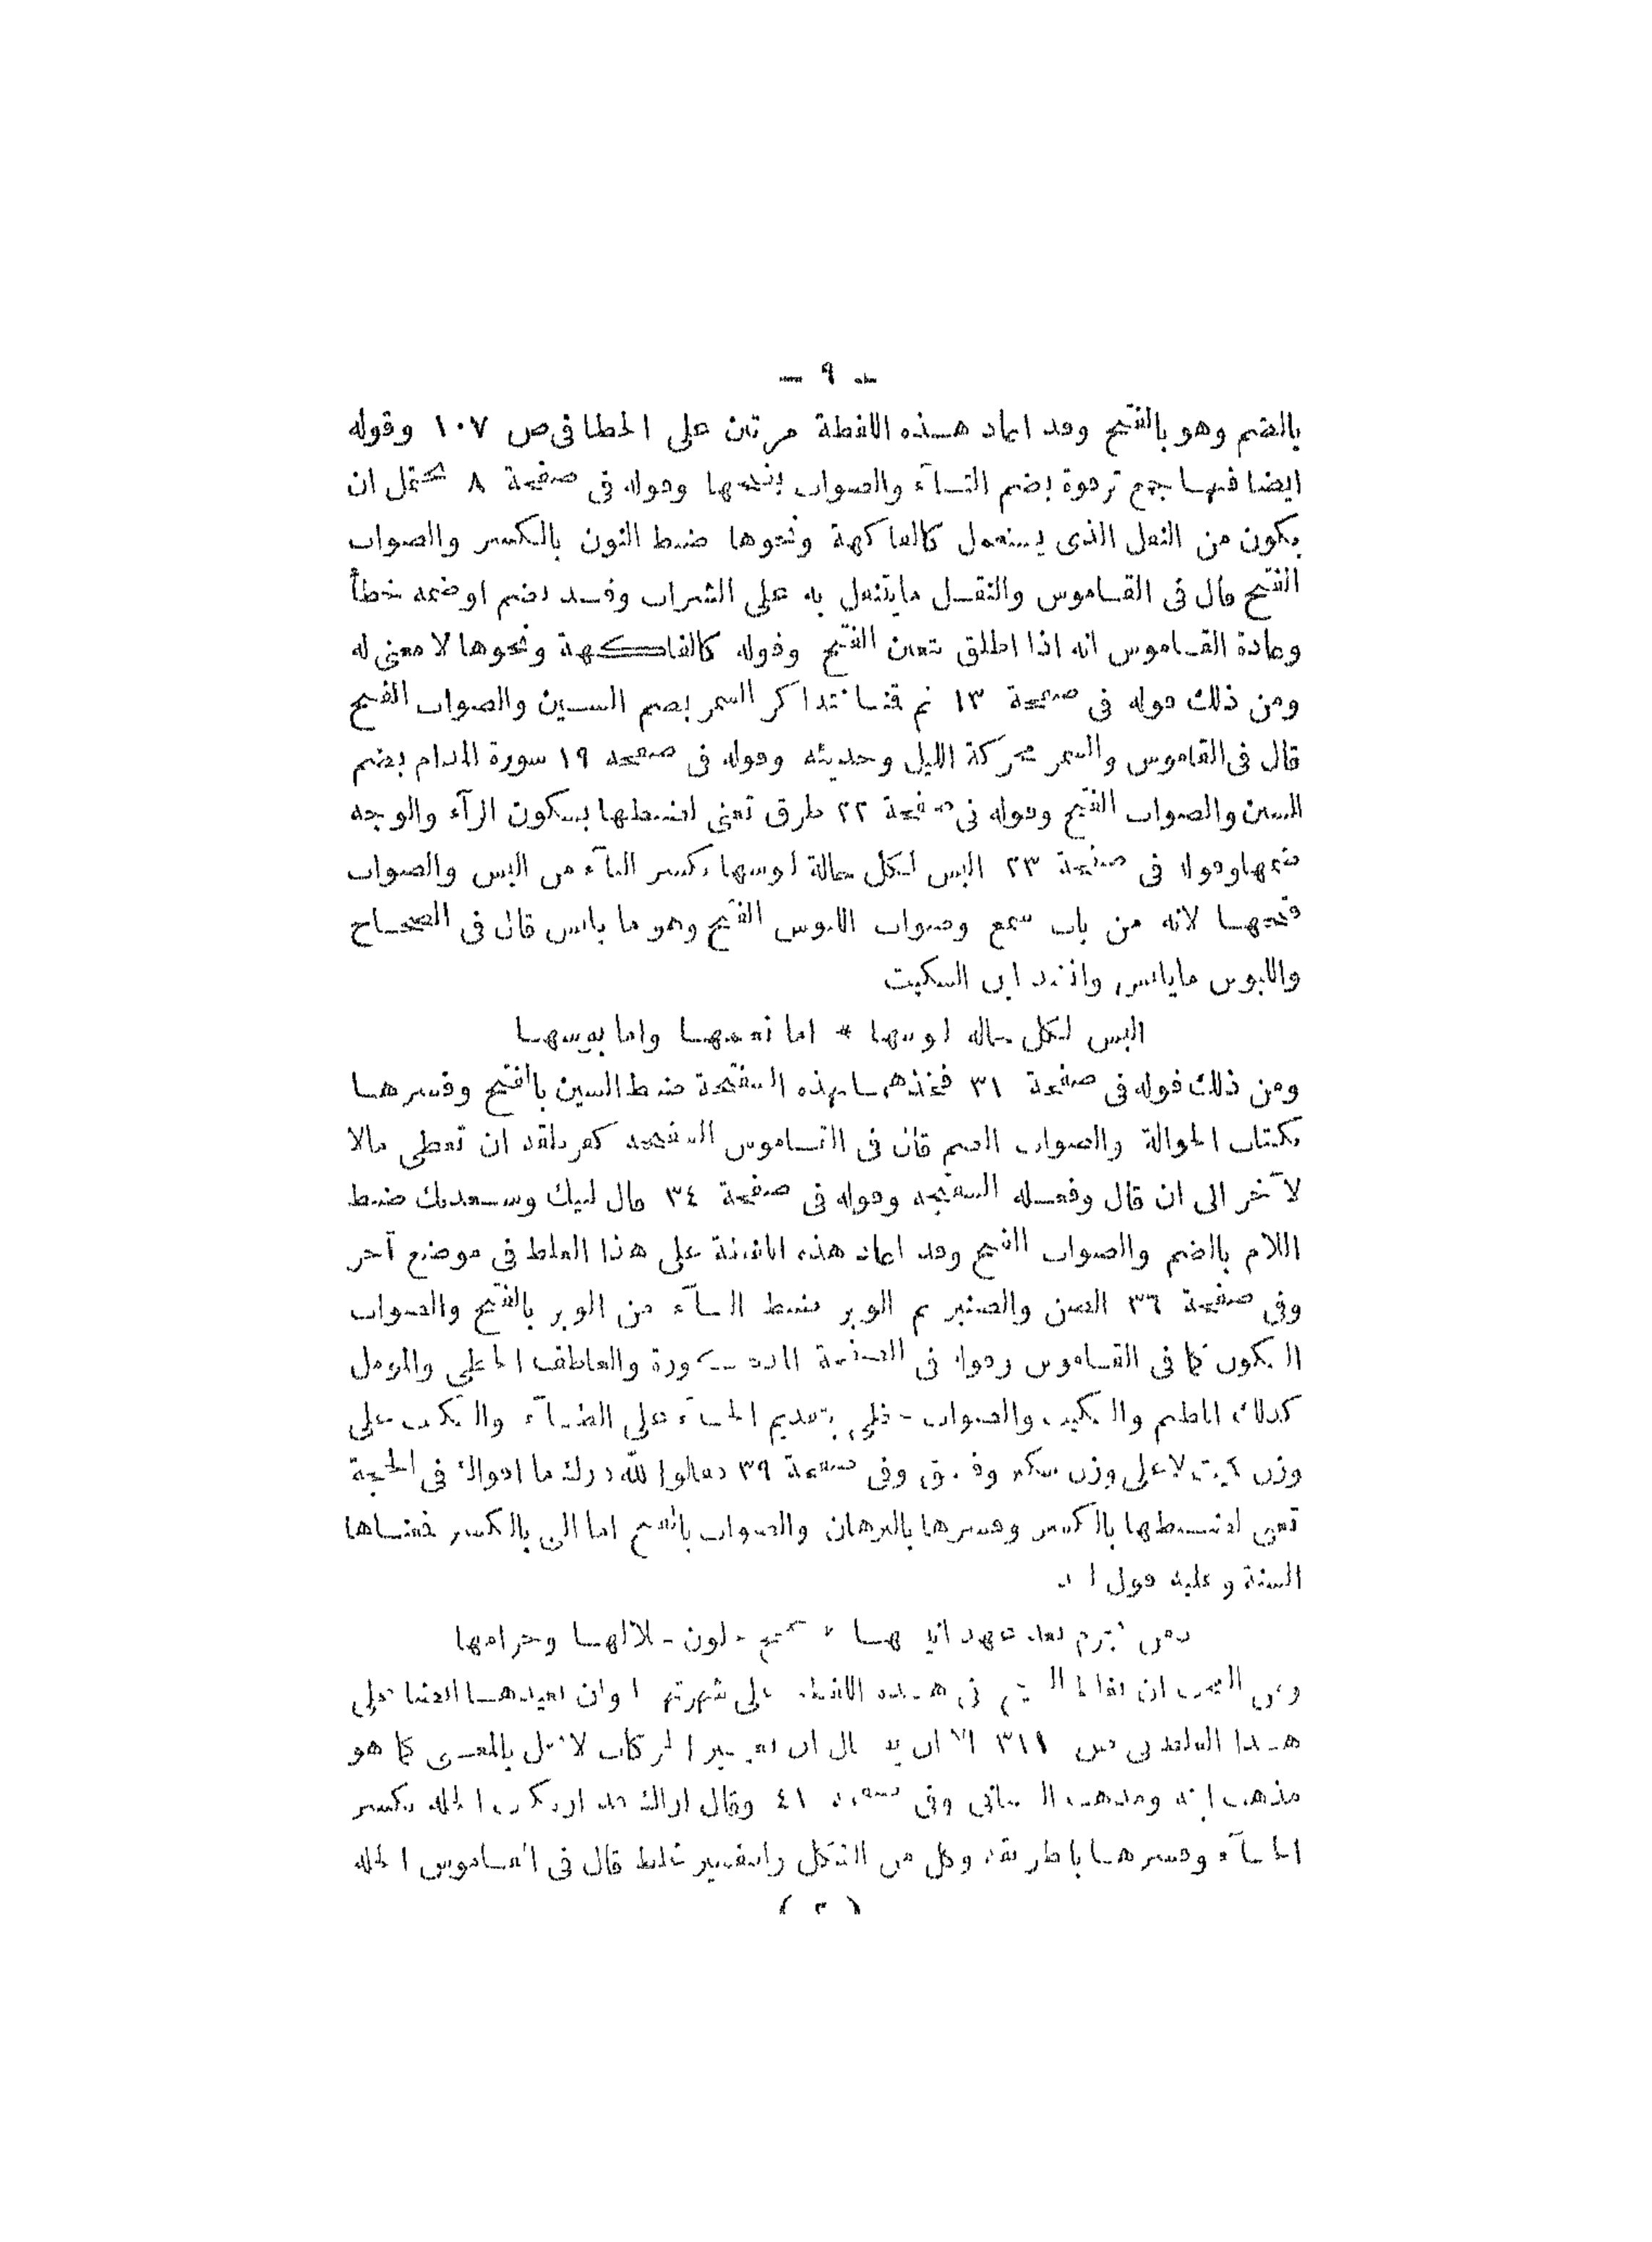 — ٩ —
بالضم وهو بالفتح وقد اعاد هذه اللفظة مرتين على الخطا فى ص ١٠٧ وقوله
ايضا فيها جمع ترقوة بضم التآء والصواب بفتحها وقوله فى صفحة ٨ يحتمل ان
يكون من النقل الذى يستعمل كالفاكهة ونحوها ضبط النون بالكسر والصواب
الفتح قال فى القاموس والنقل ما يتنقل به على الشراب وقد يضم او ضمه خطأ
وعادة القاموس انه اذا اطلق تعين الفتح وقوله كالفاكهة ونحوها لا معنى له
ومن ذلك قوله فى صفحة ١٣ ثم قنا نتذاكر السمر بضم السين والصواب الفتح
قال فى القاموس والسمر محركة الليل وحديثه وقوله فى صفحه ١٩ سورة المدام بضم
السين والصواب الفتح وقوله فى صفحة ٢٢ طرق تعنى ضبطها بسكون الرآء والوجه
ضمها وقوله فى صفحة ٢٣ البس لكل حالة لبوسها بكسر البآء من البس والصواب
فتحها لانه من باب سمع وصواب اللبوس الفتح وهو ما يلبس قال فى الصحاح
واللبوس ما يلبس وانشد ابن السكيت
البس لكل حاله لبوسها * اما نعيمها واما بوسها
ومن ذلك قوله فى صفحة ٣١ فخذها بهذه السفتجة ضبط السين بالفتح وفسرها
بكتاب الحوالة والصواب الضم قال فى القاموس السفتجه كقرطقة ان تعطى مالا
لآخر الى ان قال وفعله السفتجه وقوله فى صفحة ٣٤ قال لبيك وسعديك ضبط
اللام بالضم والصواب الفتح وقد اعاد هذه اللفظة على هذا الغلط فى موضع آخر
وفى صفحة ٣٦ الصن والصنبر ثم الوبر ضبط البآء من الوبر بالفتح والصواب
السكون كما فى القاموس وقوله فى الصفحة المذكورة والعاطف الحظى والمؤمل
كذلك اللطيم والسكيت والصواب حظى بتقديم الحآء على الظآء والسكيت على
وزن كميت لا على وزن سكير وفى صفحة ٣٩ فقالوا لله درك ما اقواك فى الحجة
تعنى ضبطها بالكسر وفسرها بالبرهان والصواب بالضم اما التى بالكسر فمعناها
السنة وعليه قول لبيد
دمن تجرم بعد عهد انيسها * حجج خلون حلالها وحرامها
ومن العجب ان فى هذه اللفظة على شهرتها وان يعيدها ايضا على
هذا الغلط فى ص ٣١١ الا ان يقال ان تغيير الحركات لا يخل بالمعنى كما هو
مذهب ومذهب وفى صفحة ٤١ وقال اراك قد الحله بكسر
الحآء وفسرها بالطريقة وكل من الشكل والتفسير غلط قال فى القاموس الحله
( ٢ )